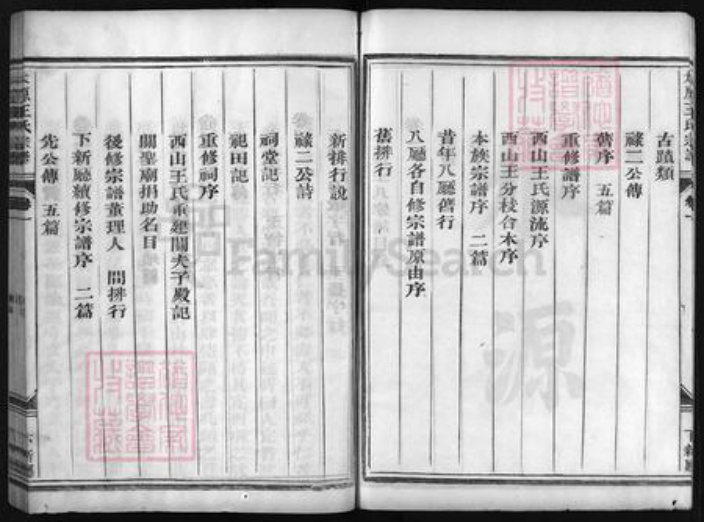 古蹟類
祿二公傳
舊序　五篇
重修譜序
西山王氏源流序
西山王分枝合本序
本族宗譜序　二篇
昔年八廳舊行
八廳各自修宗譜原由序
舊排行
新排行說
祿二公詩
祠堂記
祀田記
重修祠序
西山王氏重建關夫子殿記
關聖廟捐助名目
後修宗譜董理人　間排行
下新廳續修宗譜序　二篇
先公傳　五篇
王氏宗譜
卷一
下新廳
源
FamilySearch